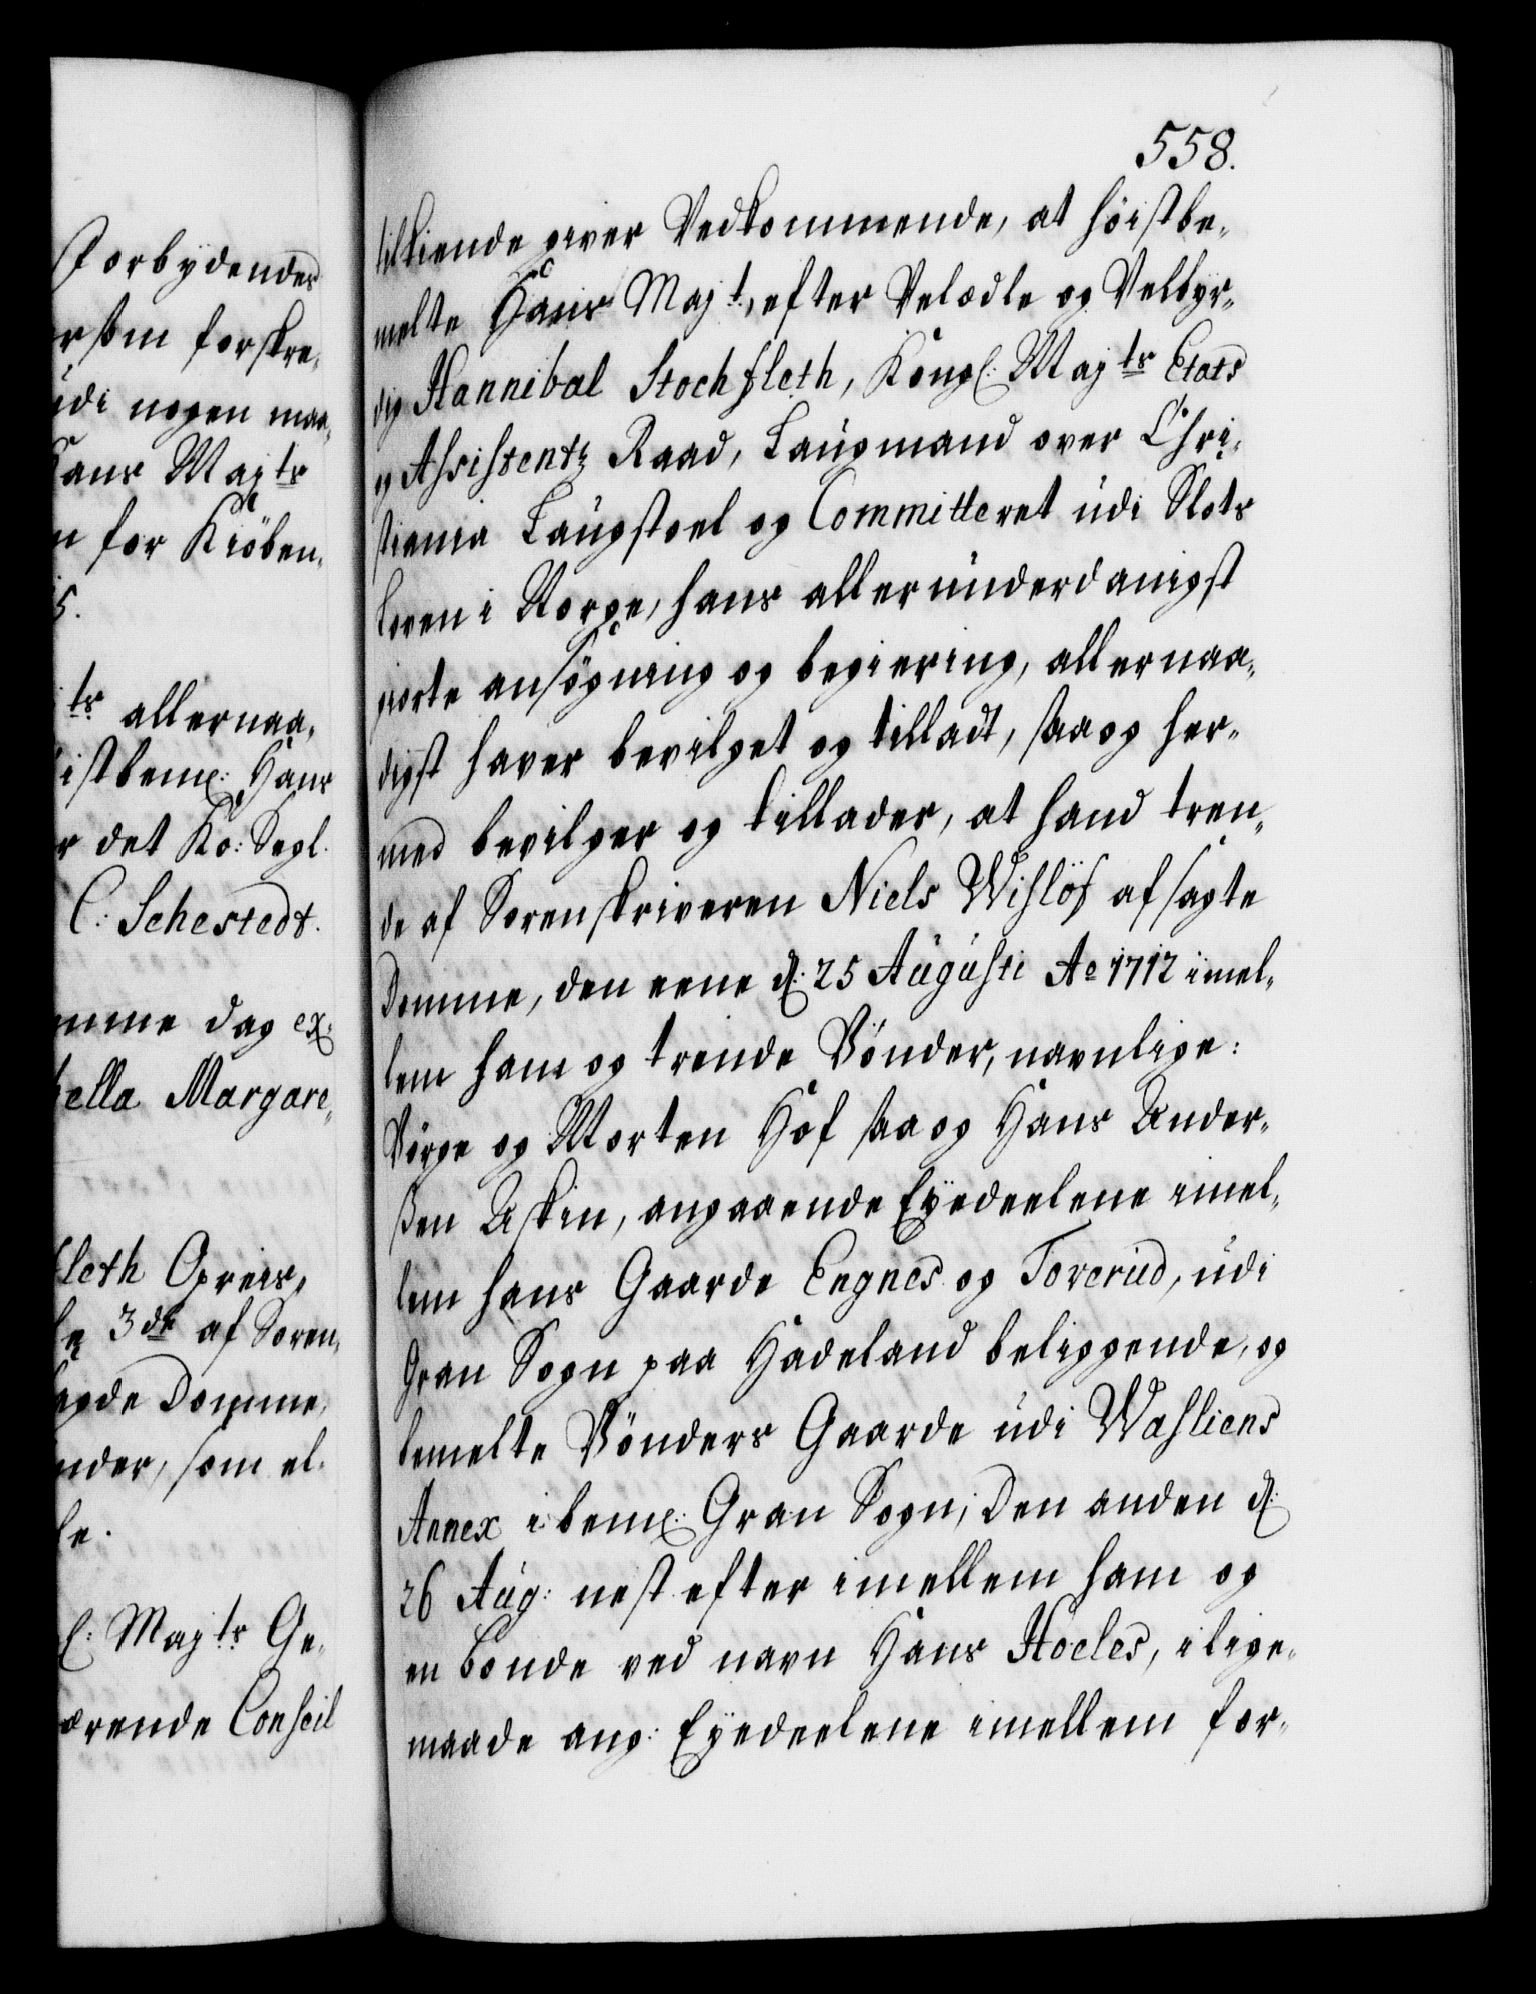 Forbydendes
ersom forskre,
udi nogen maa,
Hans Majts
n for Kiöben,
5.
ts allernaa,
istbemt: Hans
r det Ko: Segl.
C: Sehestedt.
mme dag ex:
bella Margare,
fleth Opreis,
le 3de af Soren,
agde Domme,
nder, som el,
le.
l: Majts Ge,
ærende Conseil
558.
tilkiende giver Vedkommende, at höistbe,
melte Hans Majt, efter Velædle og Velbyr,
dig Hannibal Stochfleth, Kongl: Majts Etats
og Assistentz Raad, Laugmand over Chri,
stiania Laugstoel og Committeret udi Slots
Loven i Norge, hans allerunderdanigst
giorte ansögning og begiering, allernaa,
digst haver bevilget og tilladt, saa og her,
med bevilger og tillader, at hand tren,
de af Sorenskriveren Niels Wislöf afsagte
Domme, den eene d: 25 Augusti Ao 1712 imel,
lem ham og trende Bönder, navnlige:
Börge og Morten Hof saa og Hans Ander,
ßen Askin, angaaende Eyedeelene imel,
lem hans Gaarde Engnes og Toverud, udi
Gran Sogn paa Hadeland beliggende, og
bemelte Bönders Gaarde udi Wahliens
Annex i bemt: Gran Sogn; Den anden d:
26 Aug: nest efter imellem ham og
en Bonde ved navn Hans Hoeles, i lige,
maade ang: Eyedeelene imellem for,